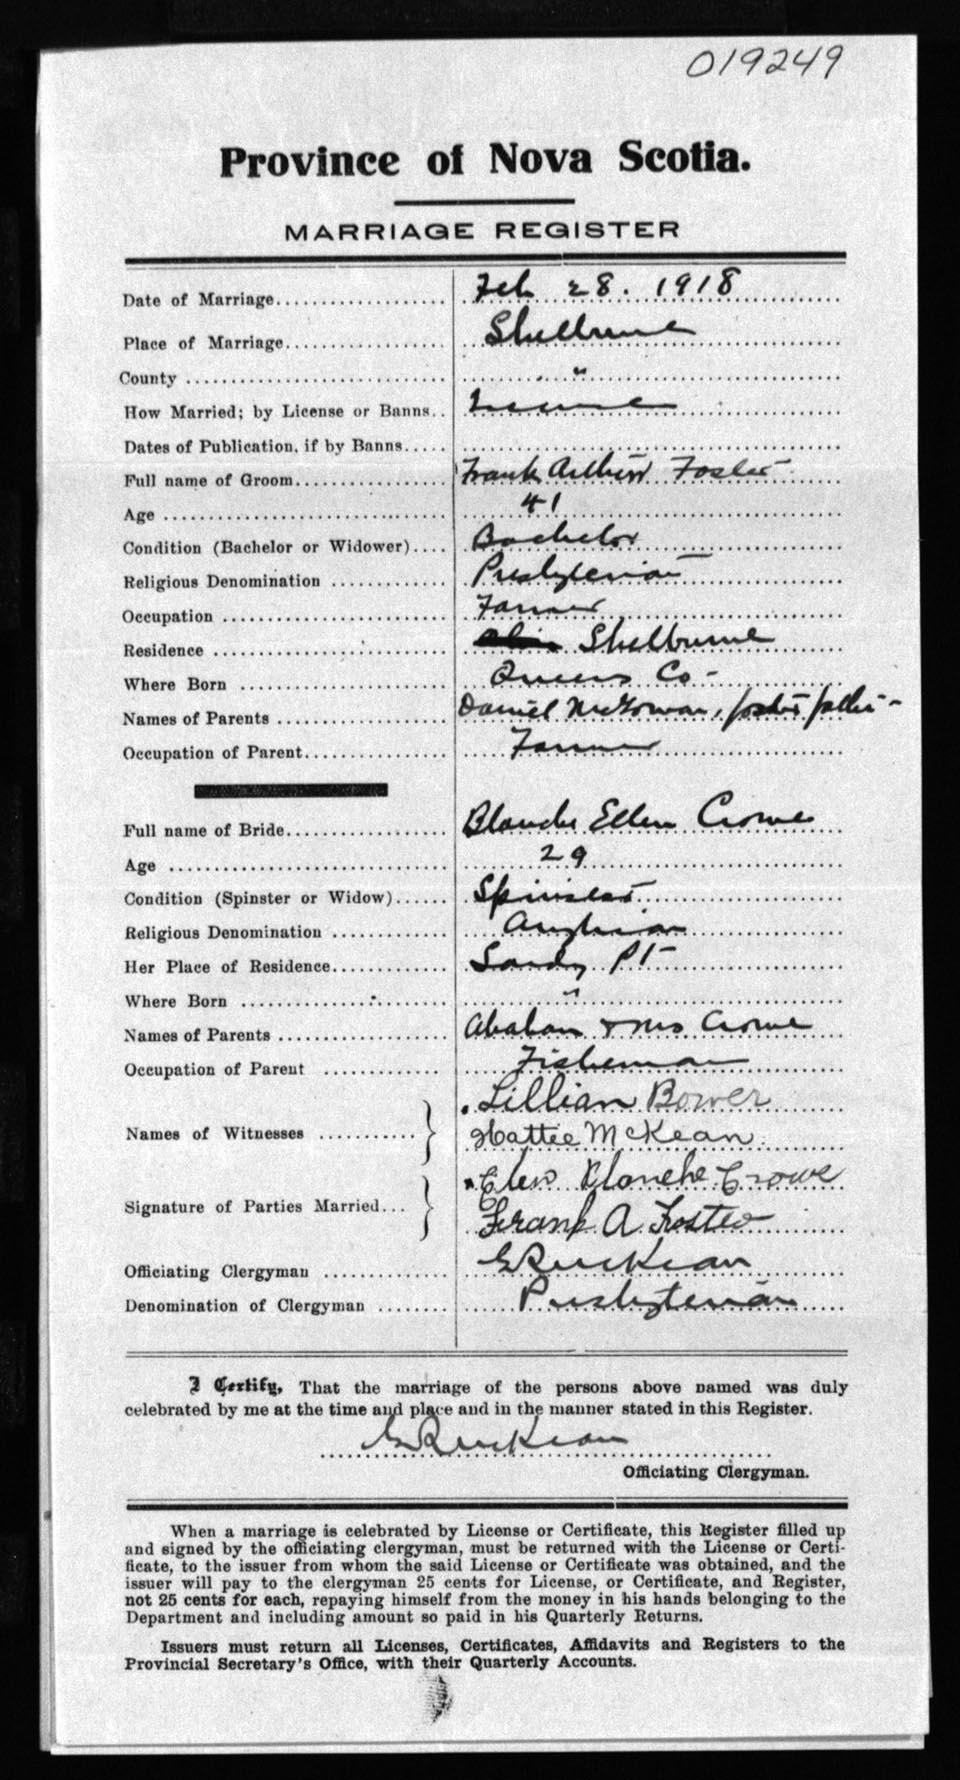 019249
Province of Nova Scotia.
MARRIAGE REGISTER
Date of Marriage Feb 28. 1918
Place of Marriage Shelburne
County "
How Married; by License or Banns License
Dates of Publication, if by Banns
Full name of Groom Frank Arthur Foster
Age 41
Condition (Bachelor or Widower) Bachelor
Religious Denomination Presbyterian
Occupation Farmer
Residence Shelburne
Where Born Queens Co -
Names of Parents Daniel McGowan, foster father -
Occupation of Parent Farmer
Full name of Bride Blanche Ellen Crowe
Age 29
Condition (Spinster or Widow) Spinster
Religious Denomination Anglican
Her Place of Residence Sandy Pt
Where Born "
Names of Parents & Mrs Crowe
Occupation of Parent Fisherman
Lillian Bower
Names of Witnesses Hattie McKean
Blanche Crowe
Signature of Parties Married
Frank A. Foster
Officiating Clergyman
Denomination of Clergyman Presbyterian
I Certify, That the marriage of the persons above named was duly
celebrated by me at the time and place and in the manner stated in this Register.
Officiating Clergyman.
When a marriage is celebrated by License or Certificate, this Register filled up
and signed by the officiating clergyman, must be returned with the License or Certi-
ficate, to the issuer from whom the said License or Certificate was obtained, and the
issuer will pay to the clergyman 25 cents for License, or Certificate, and Register,
not 25 cents for each, repaying himself from the money in his hands belonging to the
Department and including amount so paid in his Quarterly Returns.
Issuers must return all Licenses, Certificates, Affidavits and Registers to the
Provincial Secretary's Office, with their Quarterly Accounts.